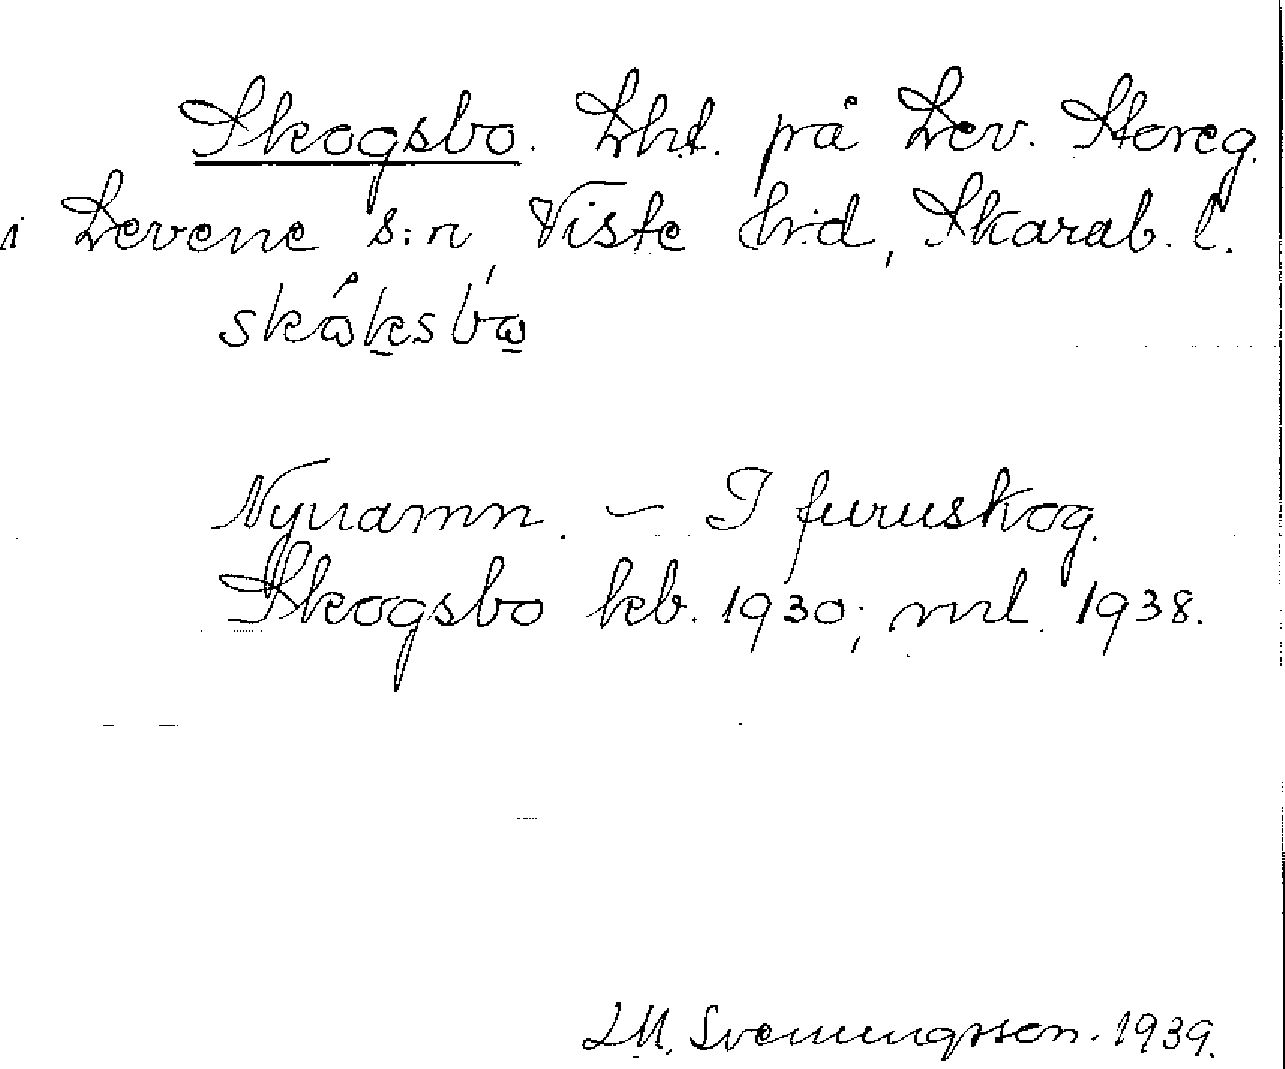 Skogsbo. Lht. på Lev. Storeg.
i Levene s:n, Viste h:d, Skarab. l.
skåksbω
Nynamn. – I furuskog.
Skogsbo kb. 1930; ml. 1938.
L M. Svenungsson. 1939.